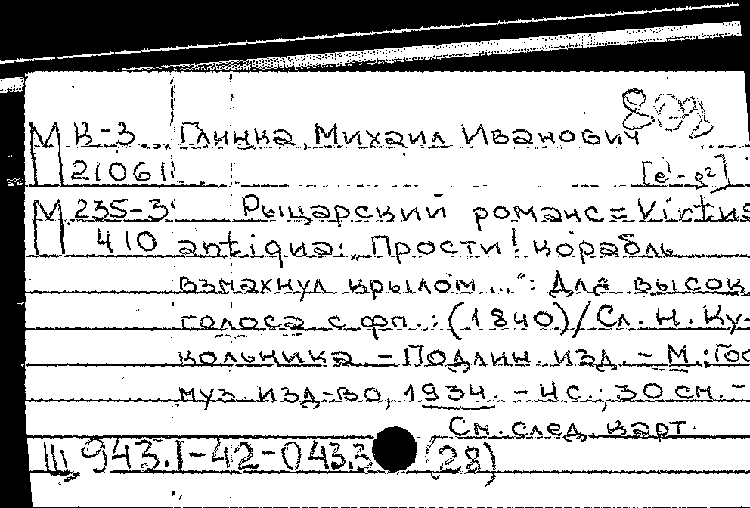 803
М К-3 Глинка, Михаил Иванович
21061 [e¹-g²]
М 235-3 Рыцарский романс = Virtus
410 antiqua: „Прости! корабль
взмахнул крылом..." : Для высок.
голоса с фп. : (1840) / Сл. Н. Ку-
кольника - Подлин. изд. - М. : Гос
муз. изд-во, 1934. - 4 с. ; 30 см. -
См. след. карт.
III 943.1-42-043.3 (28)